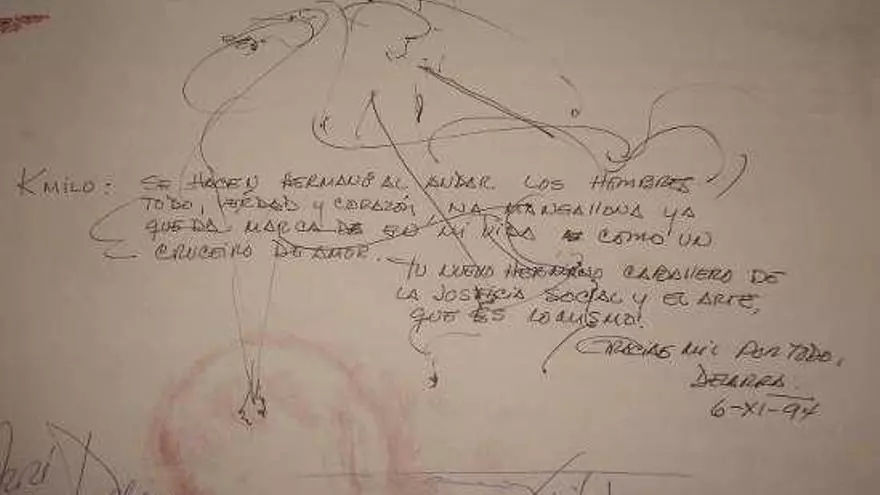 KMILO: SE HACEN HERMANO AL ANDAR LOS HEMBRES
TODO, ERDAD Y CORAZÓN, NA MANGALLONA YA
QUEDA MARCA DE EN MI VIDA COMO UN
CRUCEIRO DE AMOR.
TU NUEVO HERMANO CABALLERO DE
LA JUSTICIA SOCIAL Y EL ARTE,
QUE ES LO MISMO!
GRACIAS MIL POR TODO,
DEZARRA
6-XI-94